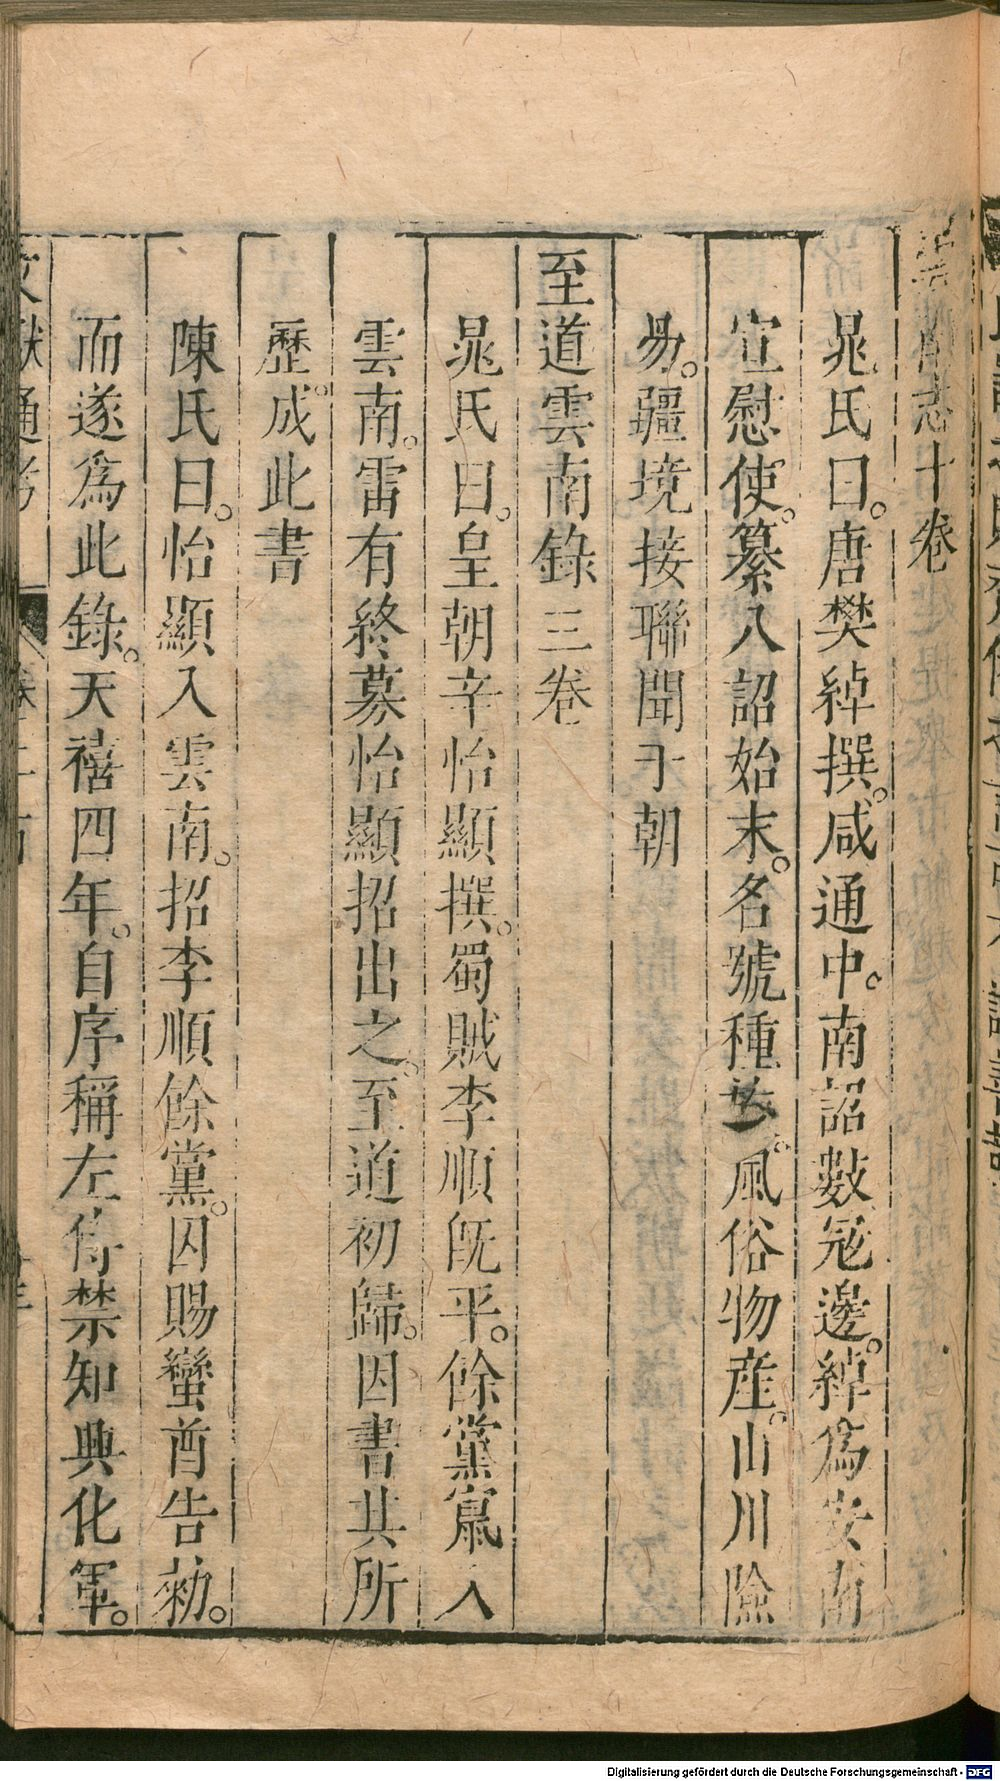 雲南志十卷
晁氏曰。唐樊綽撰。咸通中。南詔數冦邊。綽爲安南
宣慰使。纂八詔始末。名號種族。風俗物産。山川險
易。疆境接聯聞于朝
至道雲南錄三卷
晁氏曰。皇朝辛怡顯撰。蜀賊李順旣平。餘黨竄入
雲南。雷有終募怡顯招出之。至道初歸。因書其所
歷。成此書
陳氏曰。怡顯入雲南。招李順餘黨。因賜蠻酋告勑。
而遂爲此錄。天禧四年。自序稱左侍禁知興化軍。
文獻通考
Digitalisierung gefördert durch die Deutsche Forschungsgemeinschaft - DFG